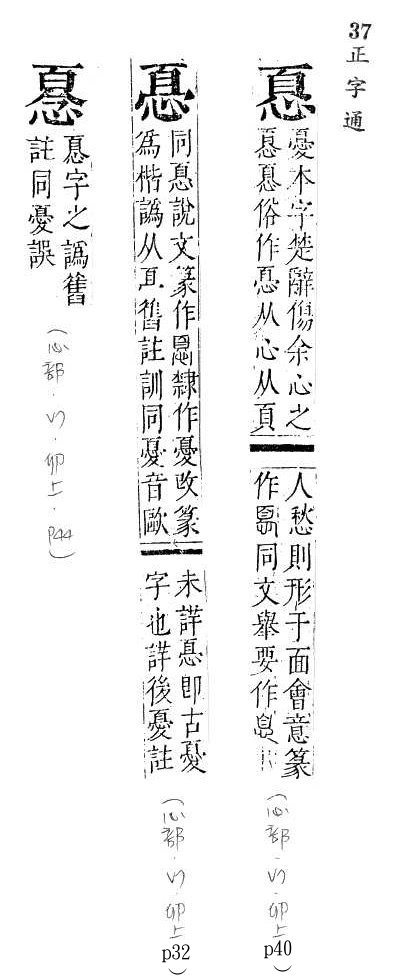 37
正字通
𢝊
憂本字楚辭傷余心之
𢝊𢝊俗作从心从頁
人愁則形于面會意篆
作同文舉要作
(心部.卯上
p40)
同𢝊說文篆作隸作憂改篆
為楷譌从舊註訓同憂音歐
未詳即古憂
字也詳後憂註
(心部.卯上
p32)
字之譌舊
註同憂誤
(心部.卯上.p44)